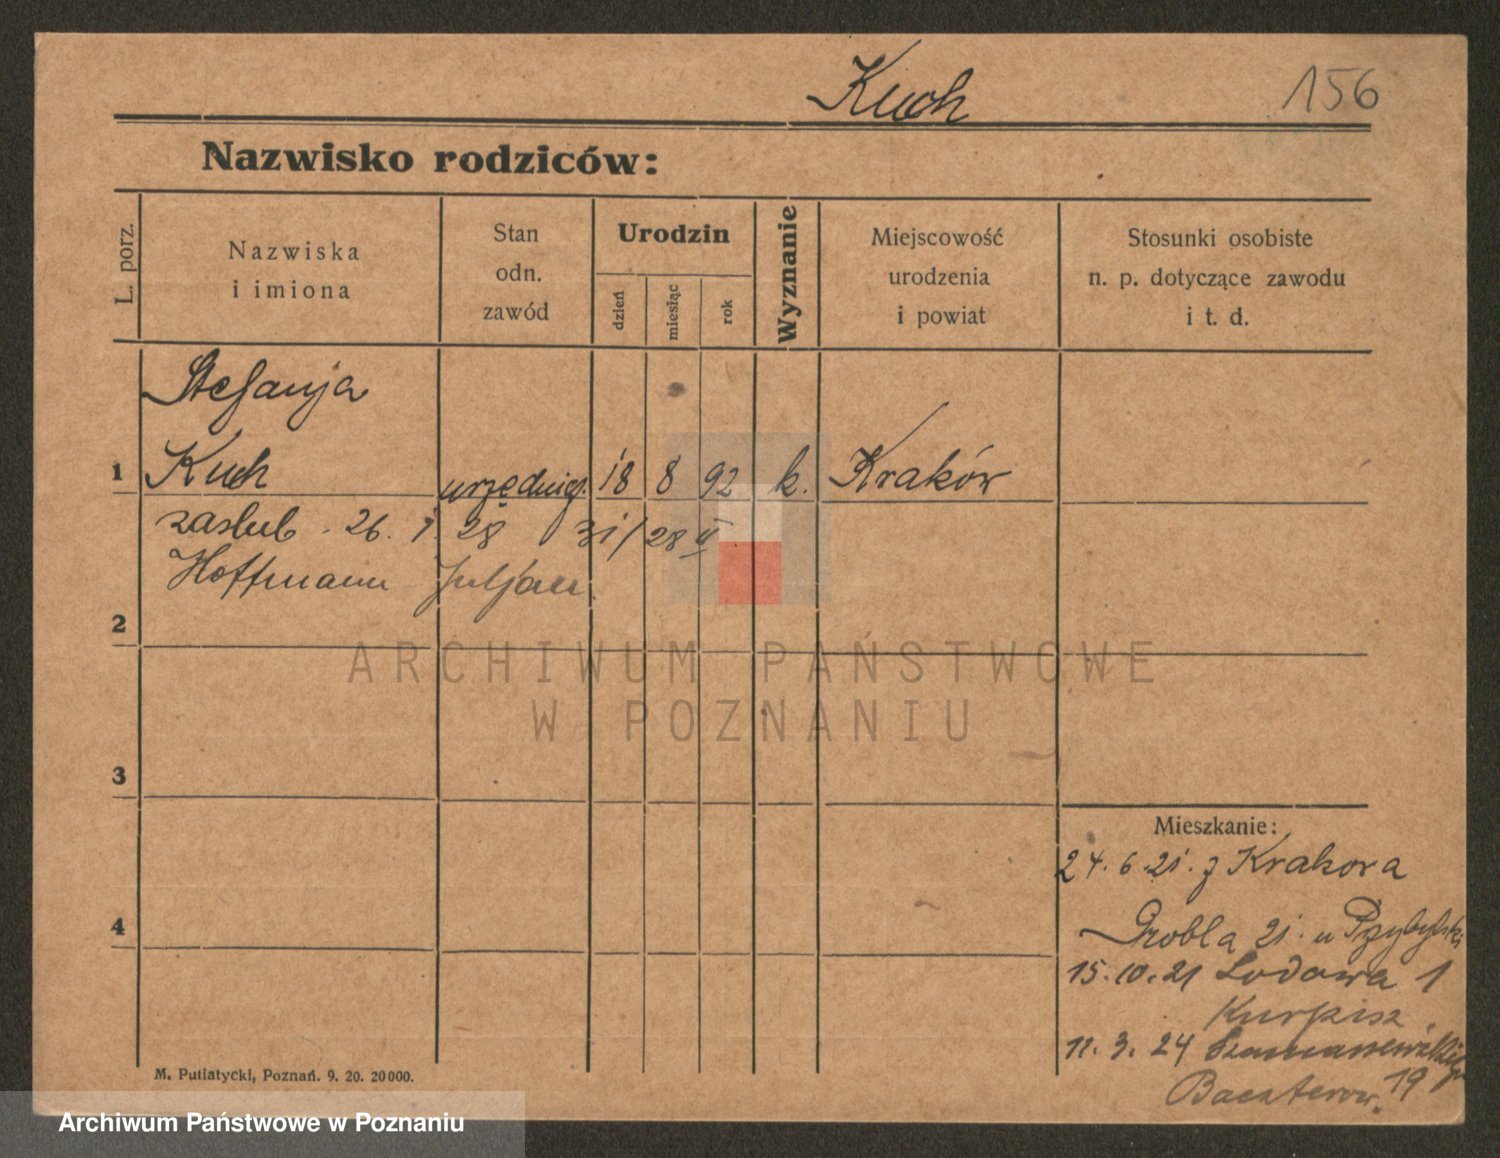 Kuch
156
Nazwisko rodziców:
L. porz.
Nazwiska
i imiona
Stan
odn.
zawód
Urodzin
dzień
miesiąc
rok
Wyznanie
Miejscowość
urodzenia
i powiat
Stosunki osobiste
n. p. dotyczące zawodu
i t. d.
Stefanja
1 Kuch urzędnicz. 18 8 92 k. Kraków
zaslub. 26. 1. 28 31/ 28 II
Hoffmann Juljan
2
ARCHIWUM PAŃSTWOWE
W POZNANIU
3
Mieszkanie:
24. 6. 21. z Krakowa
4
Grobla 21. u Przybylski
15. 10. 21 Lodowa 1
Kurpisz
11. 3. 24 19
M. Putiatycki, Poznań. 9. 20. 20000.
Archiwum Państwowe w Poznaniu